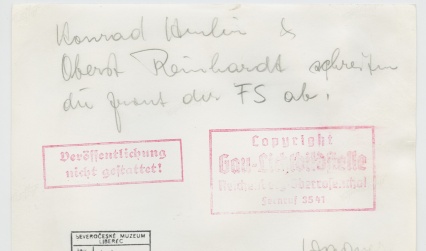 Konrad Henlein &
Oberst Reinhardt schreiten
die front der FS ab.
Veröffentlichung
nicht gestattet!
Copyright
Gau-Lichtbildstelle
Reichenberg, Oberrosenthal
Fernruf 3541
SEVEROČESKÉ MUZEUM
LIBEREC